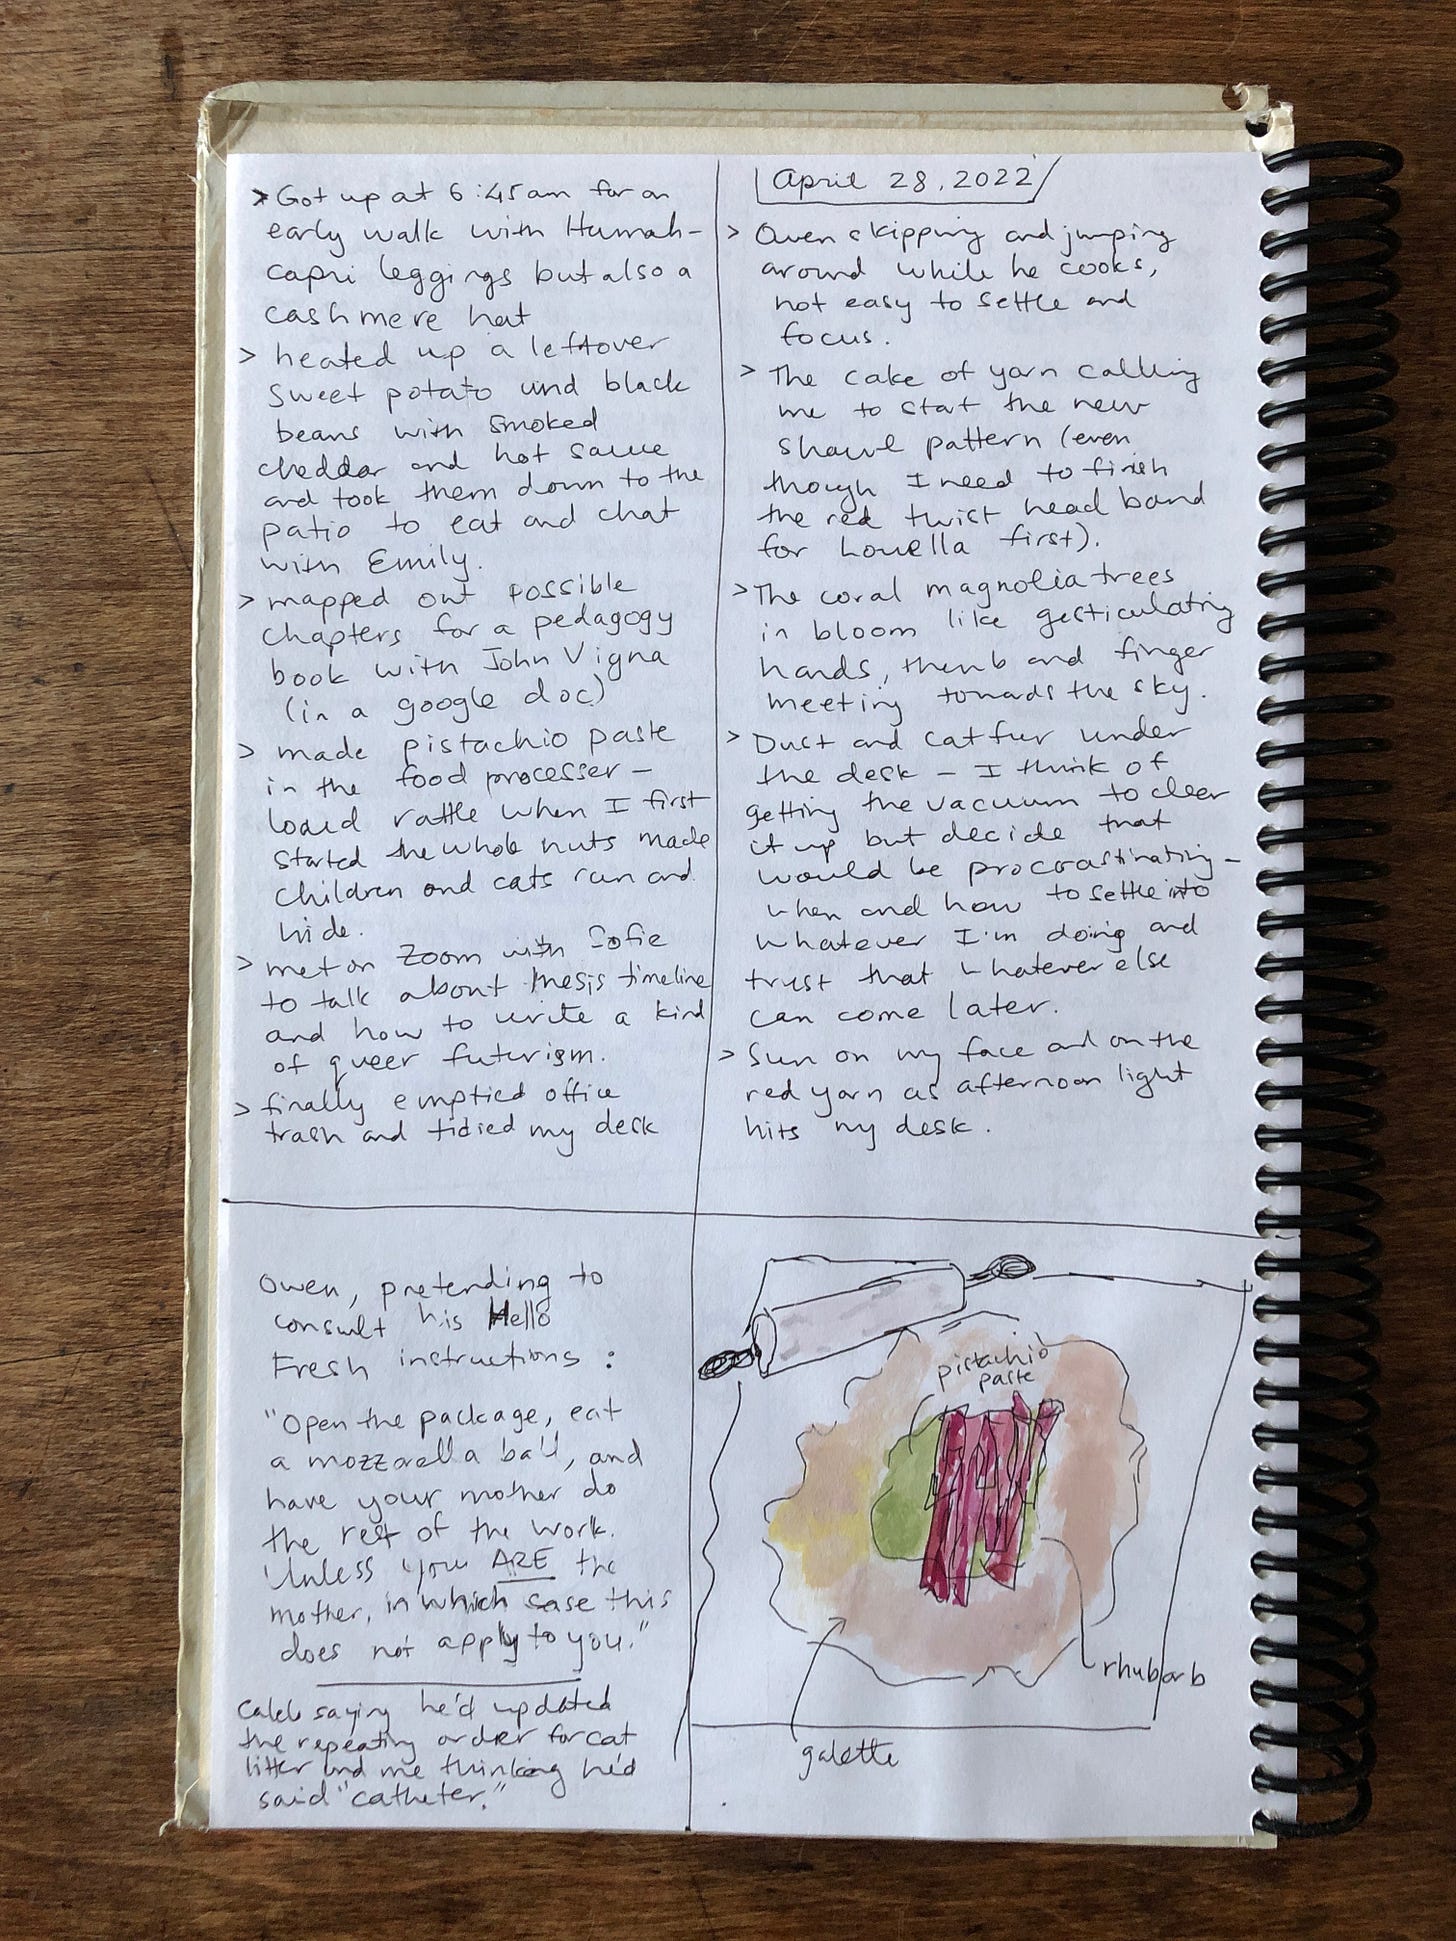 > Got up at 6:45am for an
early walk with Humah-
capri leggings but also a
cashmere hat
> heated up a leftover
sweet potato and black
beans with smoked
cheddar and hot sauce
and took them down to the
patio to eat and chat
with Emily.
> mapped out possible
chapters for a pedagogy
book with John Vigna
(in a google doc)
> made pistachio paste
in the food processer –
loud rattle when I first
started the whole nuts made
children and cats run and
hide.
> met on Zoom with Sofie
to talk about thesis timeline
and how to write a kind
of queer futurism.
> finally emptied office
trash and tidied my desk
April 28, 2022
> Owen skipping and jumping
around while he cooks,
not easy to settle and
focus.
> The cake of yarn calling
me to start the new
shawl pattern (even
though I need to finish
the red twist head band
for Louella first).
> The coral magnolia trees
in bloom like gesticulating
hands, thumb and finger
meeting towards the sky.
> Dust and cat fur under
the desk – I think of
getting the vacuum to clear
it up but decide that
would be procrastinating –
when and how to settle into
whatever I'm doing and
trust that whatever else
can come later.
> Sun on my face and on the
red yarn as afternoon light
hits my desk.
Owen, pretending to
consult his Hello
Fresh instructions :
"Open the package, eat
a mozzarella ball, and
have your mother do
the rest of the work.
Unless you ARE the
mother, in which case this
does not apply to you."
Caleb saying he'd updated
the repeating order for cat
litter and me thinking he'd
said "catheter."
pistachio
paste
rhubarb
galette